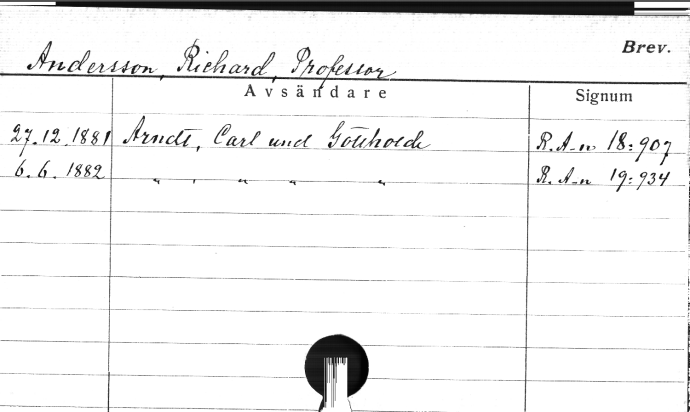 Brev.
Andersson, Richard, Professor
Avsändare Signum
27.12.1881 Arndt, Carl und Gotthold R.A-n 18:907
6.6.1882 " , " " " R.A-n 19:934